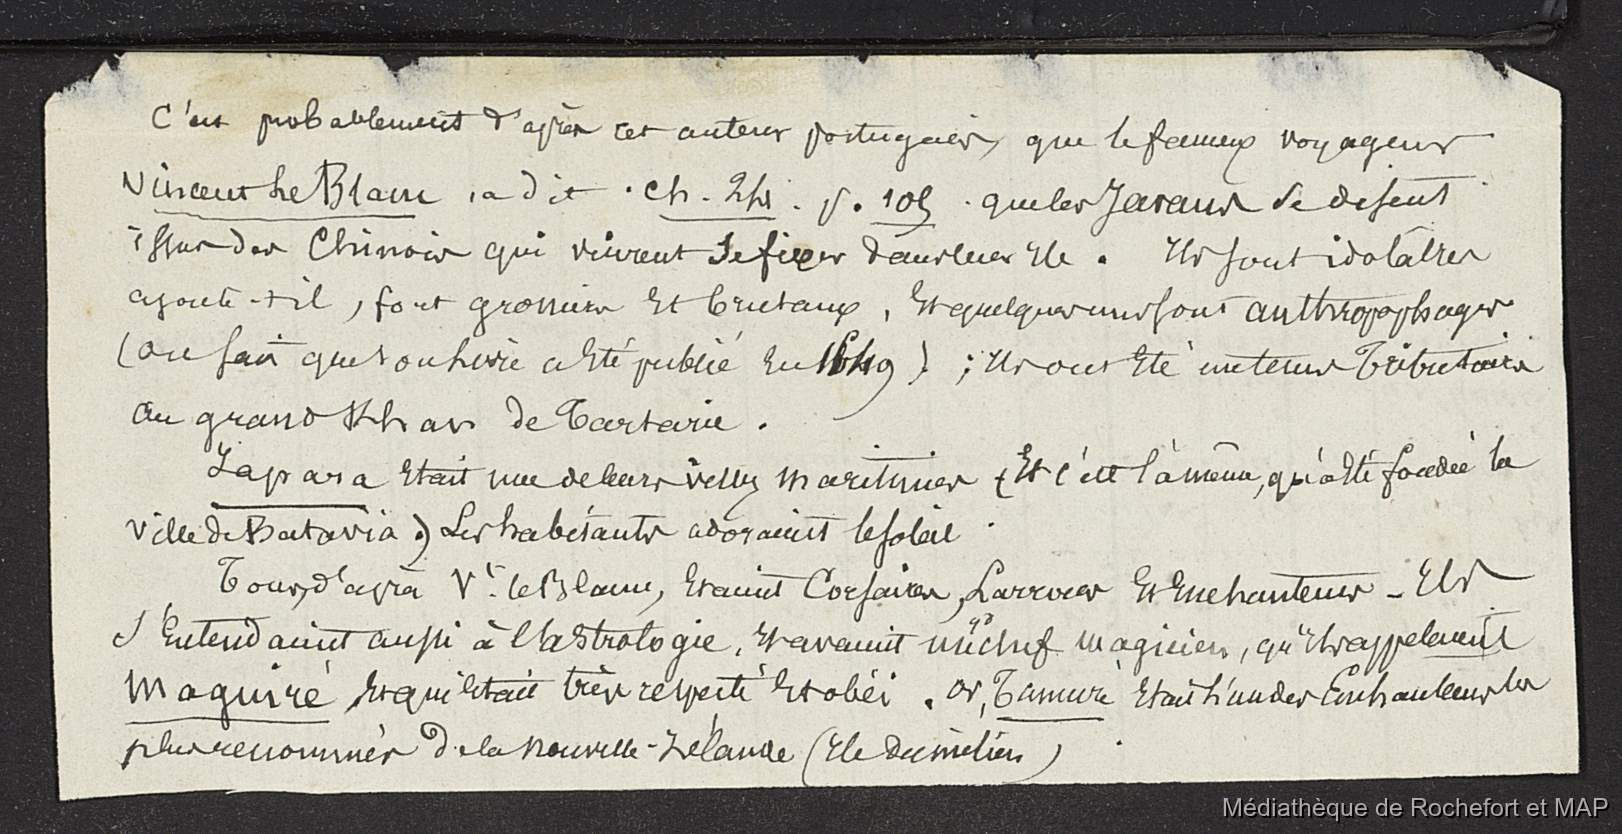 C'est probablement d'après cet auteur portugais, que le fameux voyageur
Vincent Le Blanc, a dit . ch. 24, . p. 105 . que les Javans se disent
issus des Chinois qui vinrent se fixer dans leur Ile . Ils sont idolâtres
ajoute-t-il, fort grossiers et brutaux, et quelques uns sont anthropophages
(on sait que son livre a été publié en 1649) ; Ils ont été un tems tributaires
du grand Khan de Tartarie .
Japara était une de leurs villes maritimes (Et c'est là même, qu'a été fondée la
ville de Batavia.) Les habitants adoraient le soleil .
Tous, d'après Vt. le Blanc, étaient Corsaires, Larrons et Enchanteurs - Ils
s'Entendaient aussi à l'astrologie, et avaient un chef magicien, qu'ils appelaient
Maguiré et qui était très respecté et obéi . Or, Tamuré était l'un des Enchanteurs les
plus renommés de la Nouvelle-Zélande (Ile du milieu) .
Médiathèque de Rochefort et MAP